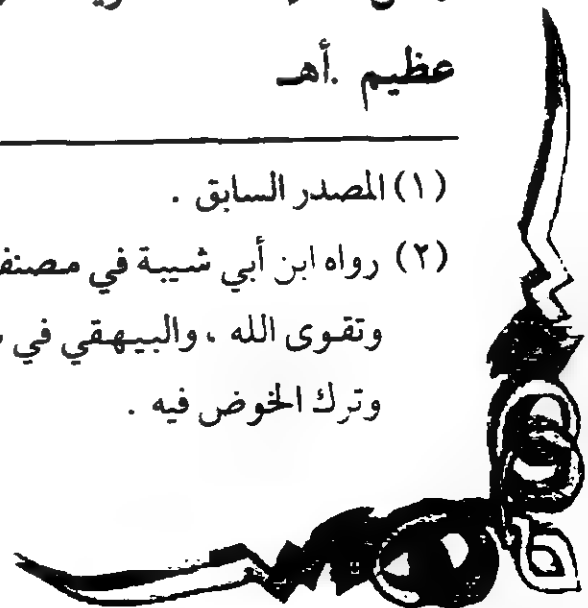 عظيم .أهـ
(١) المصدر السابق .
(٢) رواه ابن أبي شيبة في
وتقوى الله ، والبيهقي في
وترك الخوض فيه .